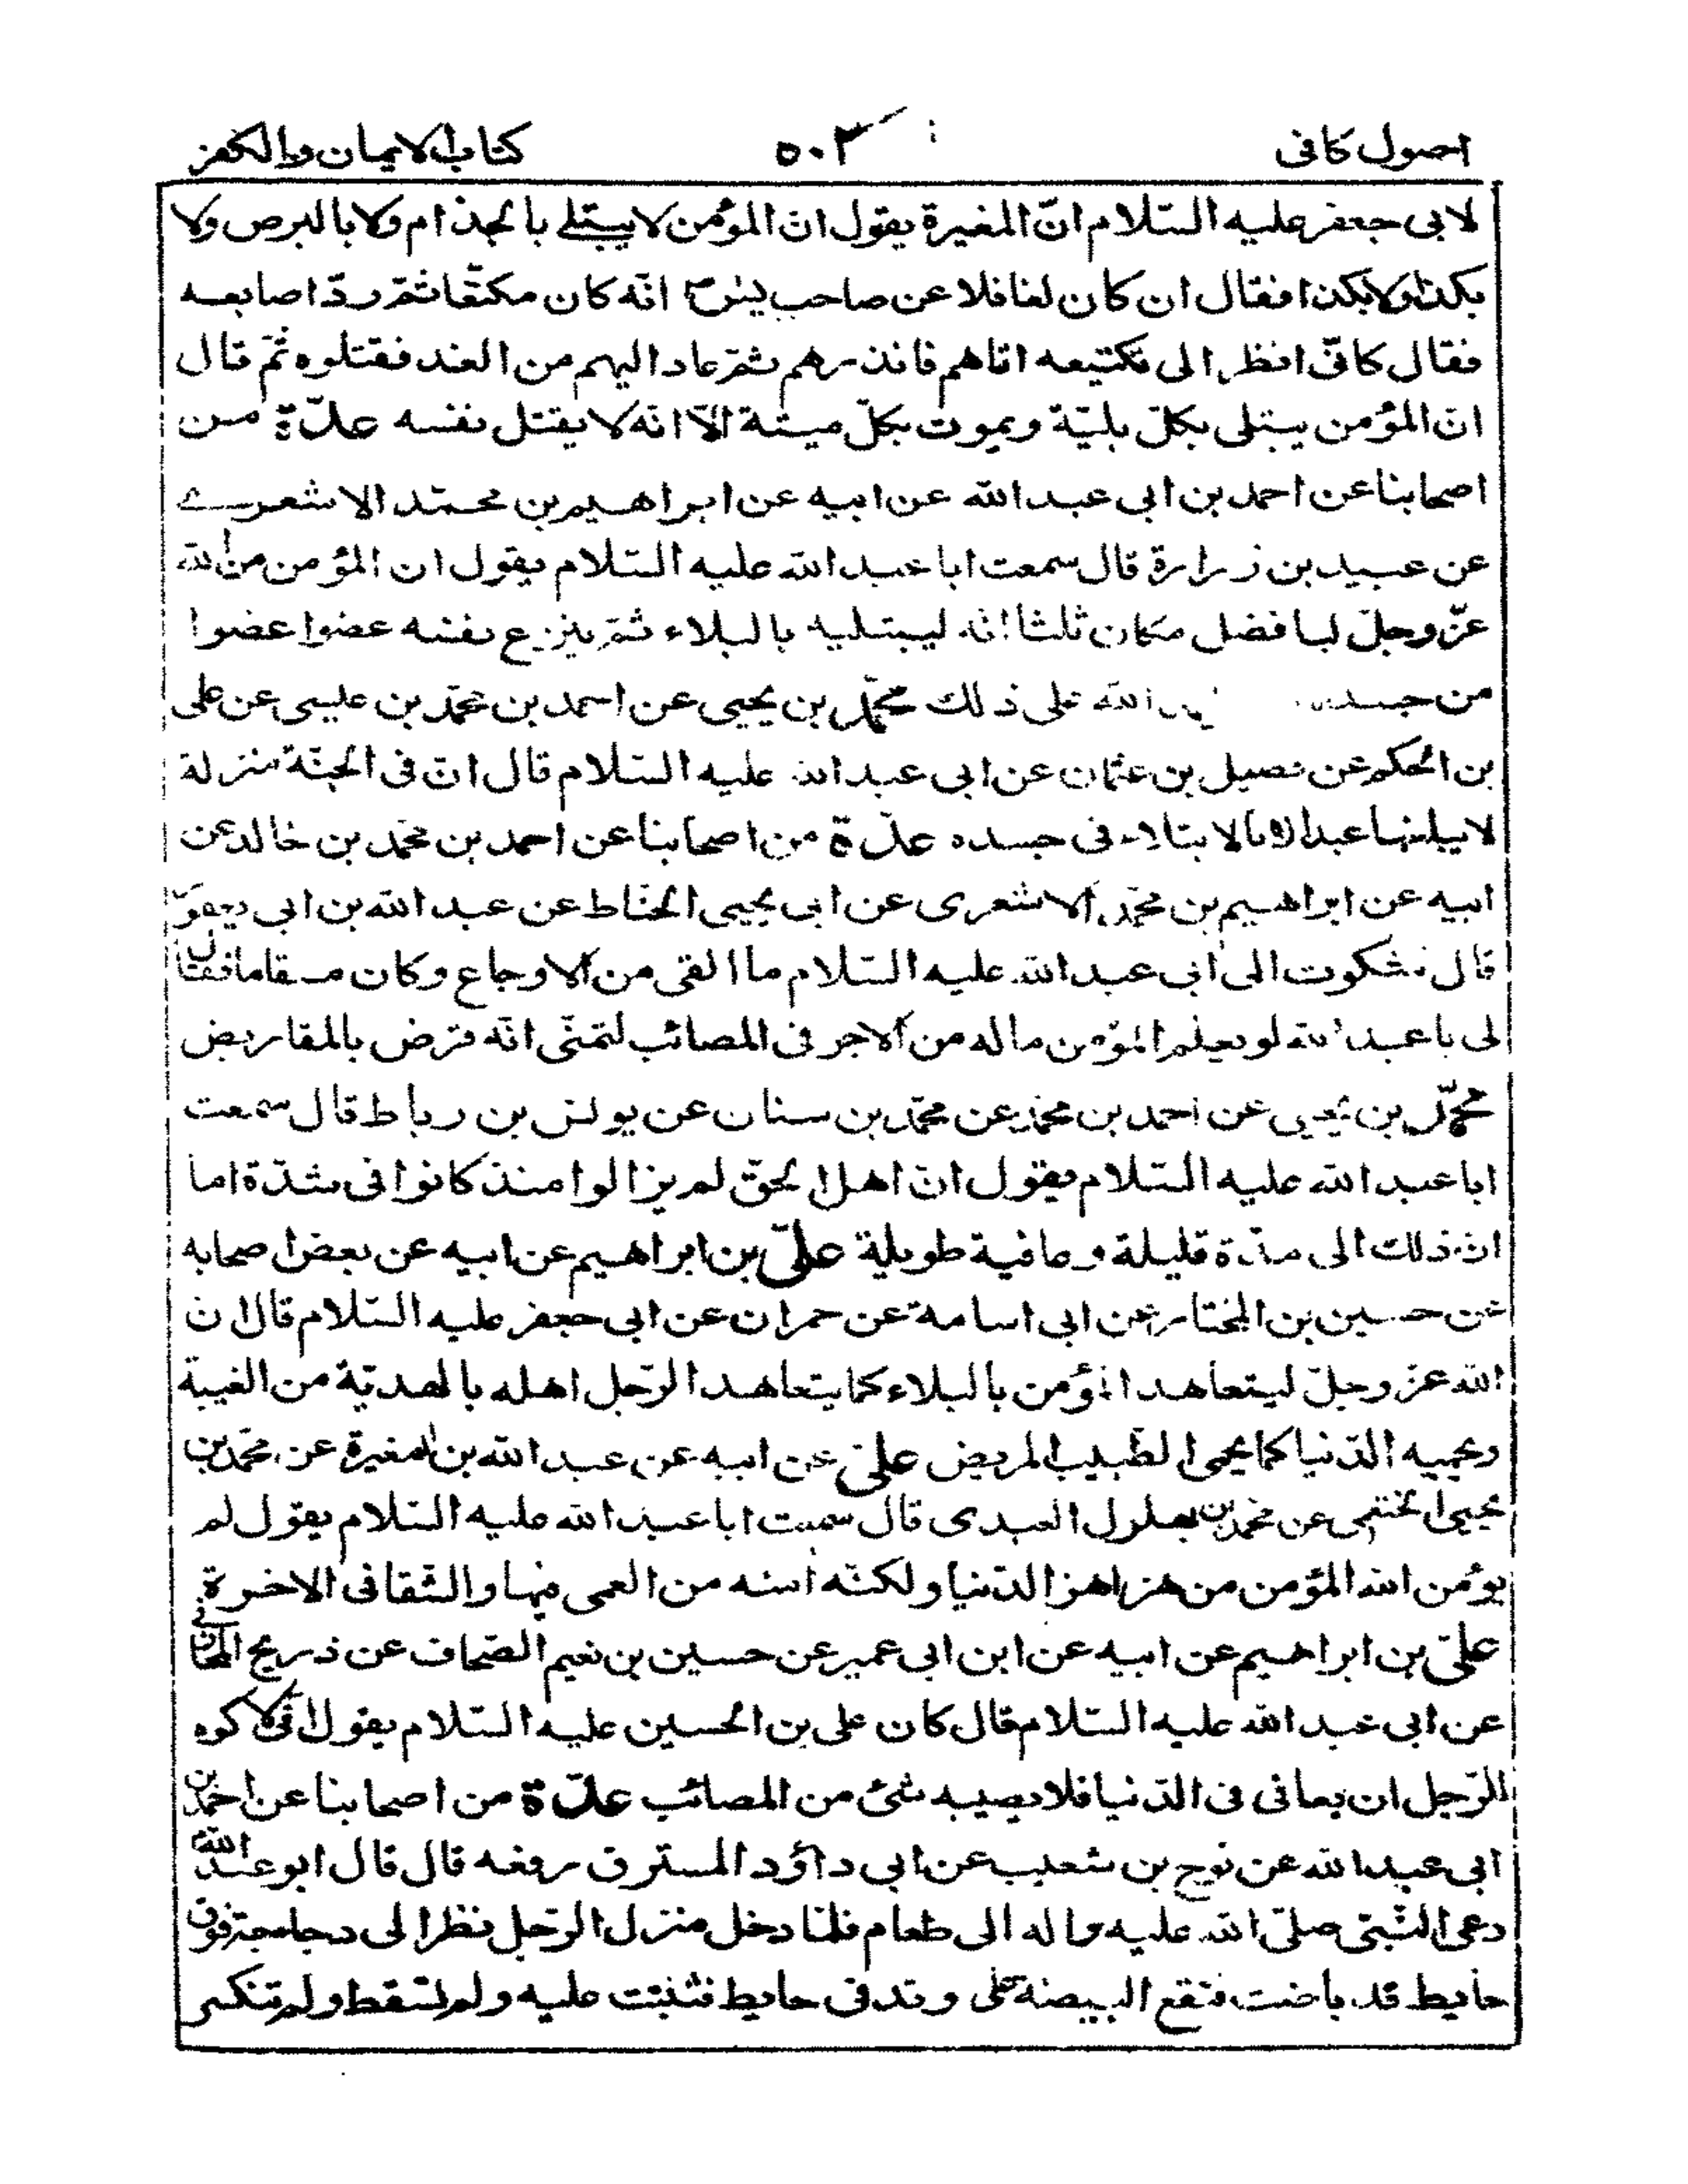 اصول کافی ۵۰۲ کتاب الایمان والکفر
لابی جعفر علیه السّلام انّ المغیرة یقول انّ المؤمن لا یبتلی بالجذام ولا بالبرص ولا
بکذا ولا بکذا فقال ان کان لغافلا عن صاحب یٰسٓ انّه کان مکتعّا ثمّ ردّ اصابعه
فقال کانّی انظر الی تکتیعه اتاهم فانذرهم ثمّ عاد الیهم من الغد فقتلوه ثمّ قال
انّ المؤمن یبتلی بکلّ بلیّة ویموت بکلّ میتة الّا انّه لا یقتل نفسه عدّة من
اصحابنا عن احمد بن ابی عبد الله عن ابیه عن ابراهیم بن محمّد الاشعری
عن عبید بن زرارة قال سمعت ابا عبد الله علیه السّلام یقول ان المؤمن من الله
عزّ وجلّ لبافضل مکان ثلثا انّه لیبتلیه بالبلاء ثمّ ینزع نفسه عضوا عضوا
من جسده الله علی ذلك محمّد بن یحیی عن احمد بن محمّد بن عیسی عن علی
بن الحکم عن فضیل بن عثمان عن ابی عبد الله علیه السّلام قال انّ فی الجنّة منزلة
لا یبلغها عبد الا بالابتلاء فی جسده عدّة من اصحابنا عن احمد بن محمّد بن خالد عن
ابیه عن ابراهیم بن محمّد الاشعری عن ابی یحیی الحنّاط عن عبد الله بن ابی یعفور
قال شکوت الی ابی عبد الله علیه السّلام ما القی من الاوجاع وکان مسقاما فقال
لی یا عبد الله لو یعلم المؤمن ما له من الاجر فی المصائب لتمنّی انّه قرض بالمقاریض
محمّد بن یحیی عن احمد بن محمّد عن محمّد بن سنان عن یونس بن رباط قال سمعت
ابا عبد الله علیه السّلام یقول انّ اهل الحقّ لم یزالوا منذ کانوا فی شدّة اما
انّ ذلك الی مدّة قلیلة وعافیة طویلة علیّ بن ابراهیم عن ابیه عن بعض اصحابه
عن حسین بن المختار عن ابی اسامة عن حمران عن ابی جعفر علیه السّلام قال ان
الله عزّ وجلّ لیتعاهد المؤمن بالبلاء کما یتعاهد الرّجل اهله بالهدیّة من الغیبة
ویحمیه الدّنیا کما یحمی الطّبیب المریض علیّ عن ابیه عن عبد الله بن المغیرة عن محمّد بن
یحیی الخثعمی عن محمّد بن بهلول العبدی قال سمعت ابا عبد الله علیه السّلام یقول لم
یؤمن الله المؤمن من هزاهز الدّنیا ولکنّه امنه من العمی فیها والشّقا فی الاخرة
علیّ بن ابراهیم عن ابیه عن ابن ابی عمیر عن حسین بن نعیم الصّحاف عن ذریح المحاربی
عن ابی عبد الله علیه السّلام قال کان علی بن الحسین علیه السّلام یقول انّی لاکره
للرّجل ان یعافی فی الدّنیا فلا یصیبه شیٔ من المصائب عدّة من اصحابنا عن احمد بن
ابی عبد الله عن نوح بن شعیب عن ابی داؤد المسترق رفعه قال قال ابو عبد الله
دعی النّبیّ صلّی الله علیه واله الی طعام فلمّا دخل منزل الرّجل نظر الی دجاجة فوق
حایط قد باضت فتقع البیضة علی وتد فی حایط فثبتت علیه ولم تسقط ولم تنکسر